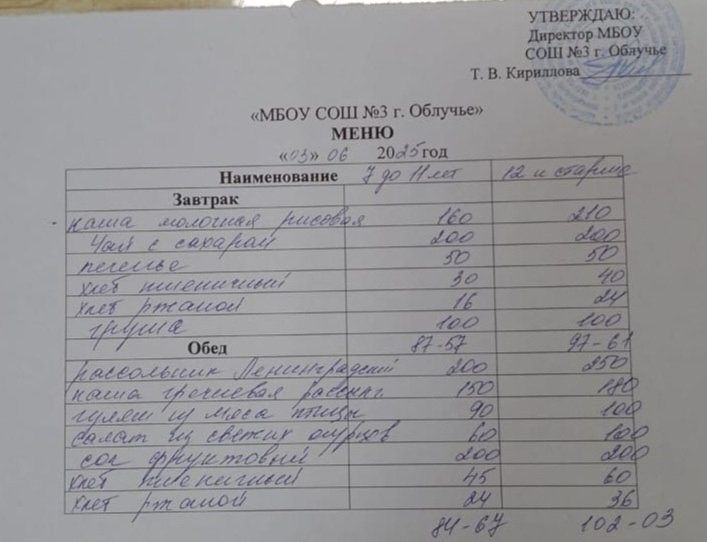 УТВЕРЖДАЮ:
Директор МБОУ
СОШ №3 г. Облучье
Т. В. Кириллова
«МБОУ СОШ №3 г. Облучье»
МЕНЮ
«03» 06 2025 год
Наименование 7 до 11 лет 12 и старше
Завтрак
каша молочная рисовая 160 210
Чай с сахаром 200 200
печенье 50 50
хлеб пшеничный 30 40
хлеб ржаной 16 24
груша 100 100
Обед 87-57 97-61
рассольник Ленинградский 200 250
каша гречневая рассыпч. 150 180
гуляш из мяса птицы 90 100
салат из свежих огурцов 60 100
сок фруктовый 200 200
хлеб пшеничный 45 60
хлеб ржаной 24 36
84-67 102-03